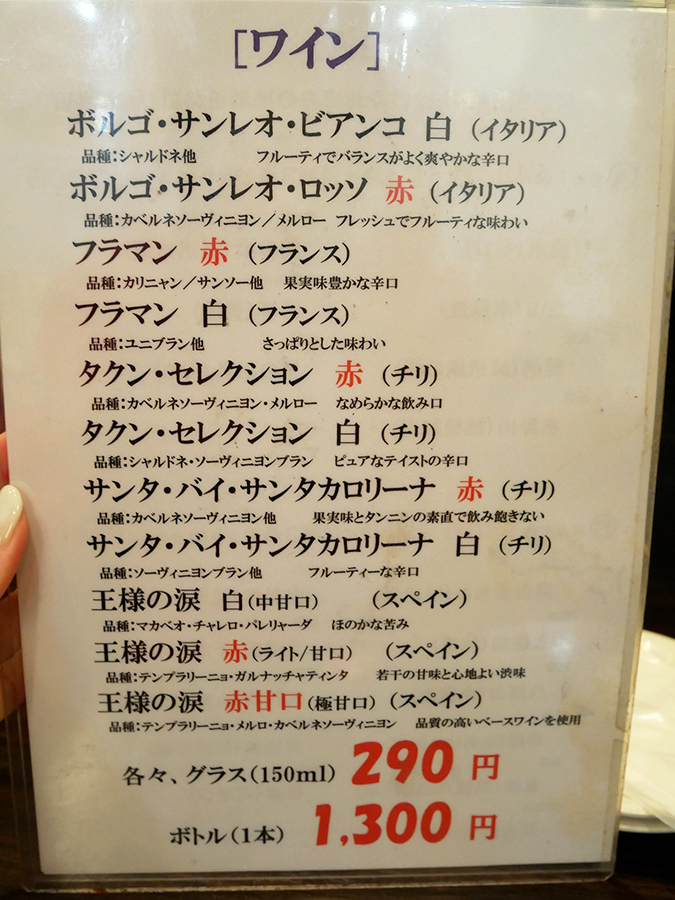 [ワイン]
ボルゴ・サンレオ・ビアンコ 白 (イタリア)
品種:シャルドネ他 フルーティでバランスがよく爽やかな辛口
ボルゴ・サンレオ・ロッソ 赤 (イタリア)
品種:カベルネソーヴィニヨン/メルロー フレッシュでフルーティな味わい
フラマン 赤 (フランス)
品種:カリニャン/サンソー他 果実味豊かな辛口
フラマン 白 (フランス)
品種:ユニブラン他 さっぱりとした味わい
タクン・セレクション 赤 (チリ)
品種:カベルネソーヴィニヨン・メルロー なめらかな飲み口
タクン・セレクション 白 (チリ)
品種:シャルドネ・ソーヴィニヨンブラン ピュアなテイストの辛口
サンタ・バイ・サンタカロリーナ 赤 (チリ)
品種:カベルネソーヴィニヨン他 果実味とタンニンの素直で飲み飽きない
サンタ・バイ・サンタカロリーナ 白 (チリ)
品種:ソーヴィニヨンブラン他 フルーティーな辛口
王様の涙 白(中甘口) (スペイン)
品種:マカベオ・チャレロ・パレリャーダ ほのかな苦み
王様の涙 赤(ライト/甘口) (スペイン)
品種:テンプラリーニョ・ガルナッチャティンタ 若干の甘味と心地よい渋味
王様の涙 赤甘口(極甘口) (スペイン)
品種:テンプラリーニョ・メルロ・カベルネソーヴィニヨン 品質の高いベースワインを使用
各々、グラス(150ml) 290 円
ボトル(1本) 1,300 円